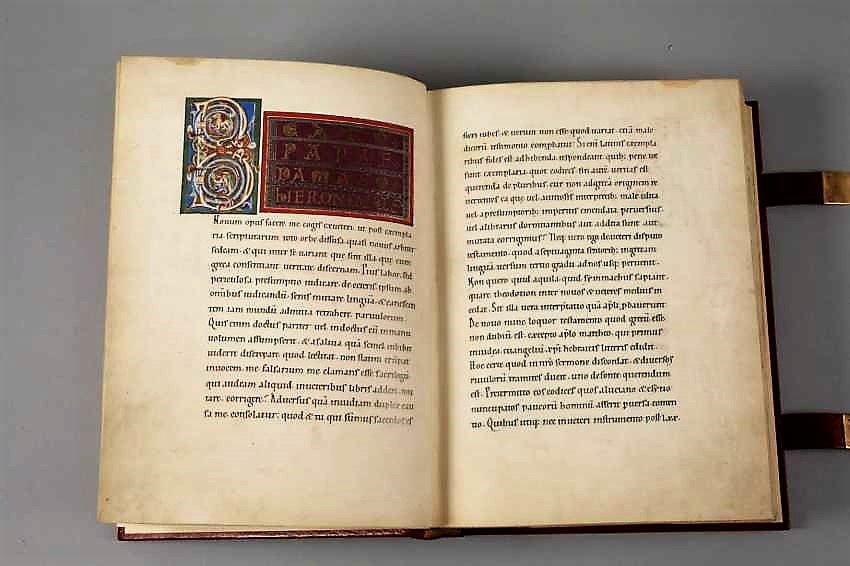 B EA
PAPAE
DAMA
HIERON
Nouum opus facere me cogis exueteri, ut post exempla
ria scripturarum toto orbe dispersa, quasi quidam arbiter
sedeam, & qui inter se uariant que sint illa que cum
greca consentiant ueritate discernam. Pius labor, sed
periculosa presumptio iudicare de ceteris, ipsum ab
omnibus iudicandū, senis mutare linguā, & canescen
tem iam mundū adinitia retrahere paruulorum.
Quis enim doctus pariter uel indoctus cū in manus
uolumen assumpserit, & asaliua quā semel inbibit
uiderit discrepare quod lectitat, non statim erūpat
inuocem me falsarium me clamans esse sacrilegū
qui audeam aliquid inueteribus libris addere, mu
tare, corrigere. Aduersus quā inuidiam duplex cau
sa me consolatur; quod & tu qui summus sacerdos es
fieri iubes, & uerum non esse quod uariat etiā male
dicorū testimonio comprobatur. Si enī latinis exempla
ribus fides est adhibenda, respondeant quib; pene tot
sunt exemplaria quot codices. Sin autē ueritas est
querenda de pluribus, cur non adgrecā originem re
uertentes ea que uel auitiosis interpretib; male edita
uel a presumptorib; imperitis emendata peruersius,
uel alibrariis dormitantibus aut addita sunt aut
mutata corrigimus? Neq; uero ego deueteri disputo
testamento, quod aseptuaginta seniorib; ingrecam
linguā uersum tertio gradu adnos usq; peruenit.
Non quero quid aquila, quid symmachus sapiant,
quare theodotion inter nouos & ueteres medius in
cedat. Sit illa uera interpretatio quā apli pbauerunt.
De nouo nunc loquor testamento quod grecū esse
non dubiū est, excepto aplo matheo, qui primus
iniudea euangeliū xpi hebraicis litteris edidit.
Hoc certe quod in nro sermone discordat, & diuersos
riuulorū tramites ducit, uno defonte querendum
est. Pretermitto eos codices quos aluciano & esitio
nuncupatos paucorū hominū asserit puersa conten
tio. Quibus utiq; nec inueteri instrumento post lxx.